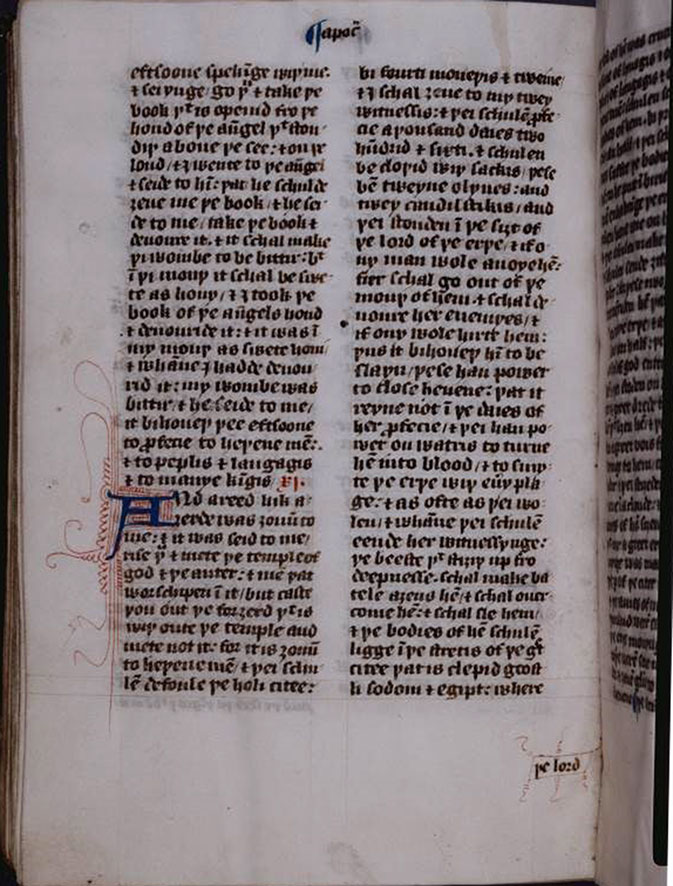 apoc̄
eftsoone spekīge wiþ me.
⁊ seiynge/ go þᵘ ⁊ take þe
book þᵗ is openid fro þe
hond of þe aūgel þᵗ ston-
diþ aboue þe see: ⁊ on þe
lond/ ⁊ I wente to þe aūgel
⁊ seide to hī: þat he schulde
ȝeue me þe book/ ⁊ he sei-
de to me/ take þe book ⁊
deuoure it. ⁊ it schal make
þi wombe to be bittir: bᵗ
ī þi mouþ it schal be swe-
te as hony/ ⁊ I took þe
book of þe aūgels hond
⁊ deuouride it: ⁊ it was ī
my mouþ as swete hony/
⁊ whāne I hadde deuou
rid it: my wombe was
bittir/ ⁊ he seide to me/
it bihoueþ þee eftsoone
to ꝓfecie to heþene mē:.
⁊ to peplis ⁊ langagis
⁊ to manye kīgis xj.
And a reed lik a
ȝerde was ȝouū to
me: ⁊ it was seid to me/
rise þᵘ ⁊ mete þe temple of
god ⁊ þe auter: ⁊ mē þat
worschipen ī it/ but caste
þou out þe forȝerd þᵗ is
wiþ oute þe temple and
mete not it: for it is ȝouū
to heþene mē/ ⁊ þei schu-
lē defoule þe holi citee:
bi fourti moneþis ⁊ tweine/
⁊ I schal ȝeue to my twey
witnessis: ⁊ þei schulē ꝓfe-
cie a þousand daies two
hūdrid ⁊ sixti. ⁊ schulen
be cloþid wiþ sackis/ þese
bē tweyne olyues: and
twey candilstikis/ and
þei stonden ī þe siȝt of
þe lord of þe erþe/ ⁊ if o-
ny man wole anoye hē:
fier schal go out of þe
mouþ of hem. ⁊ schal de-
uoure her enemyes/ ⁊
if ony wole hirte hem:
þus it bihoueþ hī to be
slayn/ þese han power
to close heuene: þat it
reyne not ī þe daies of
her ꝓfecie/ ⁊ þei han po-
wer on watris to turne
hē into blood/ ⁊ to smy-
te þe erþe wiþ eūy pla-
ge: ⁊ as ofte as þei wo-
len/ ⁊ whāne þei schulē
eende her witnessynge:
þe beeste þᵗ stiȝeþ up fro
deepnesse. schal make ba
tele aȝens hē/ ⁊ schal ouer-
come hē: ⁊ schal sle hem/
⁊ þe bodies of hē schulē
ligge ī þe stretis of þe gᵗ
citee þat is clepid goost
li sodom ⁊ egipt: where
þe lord